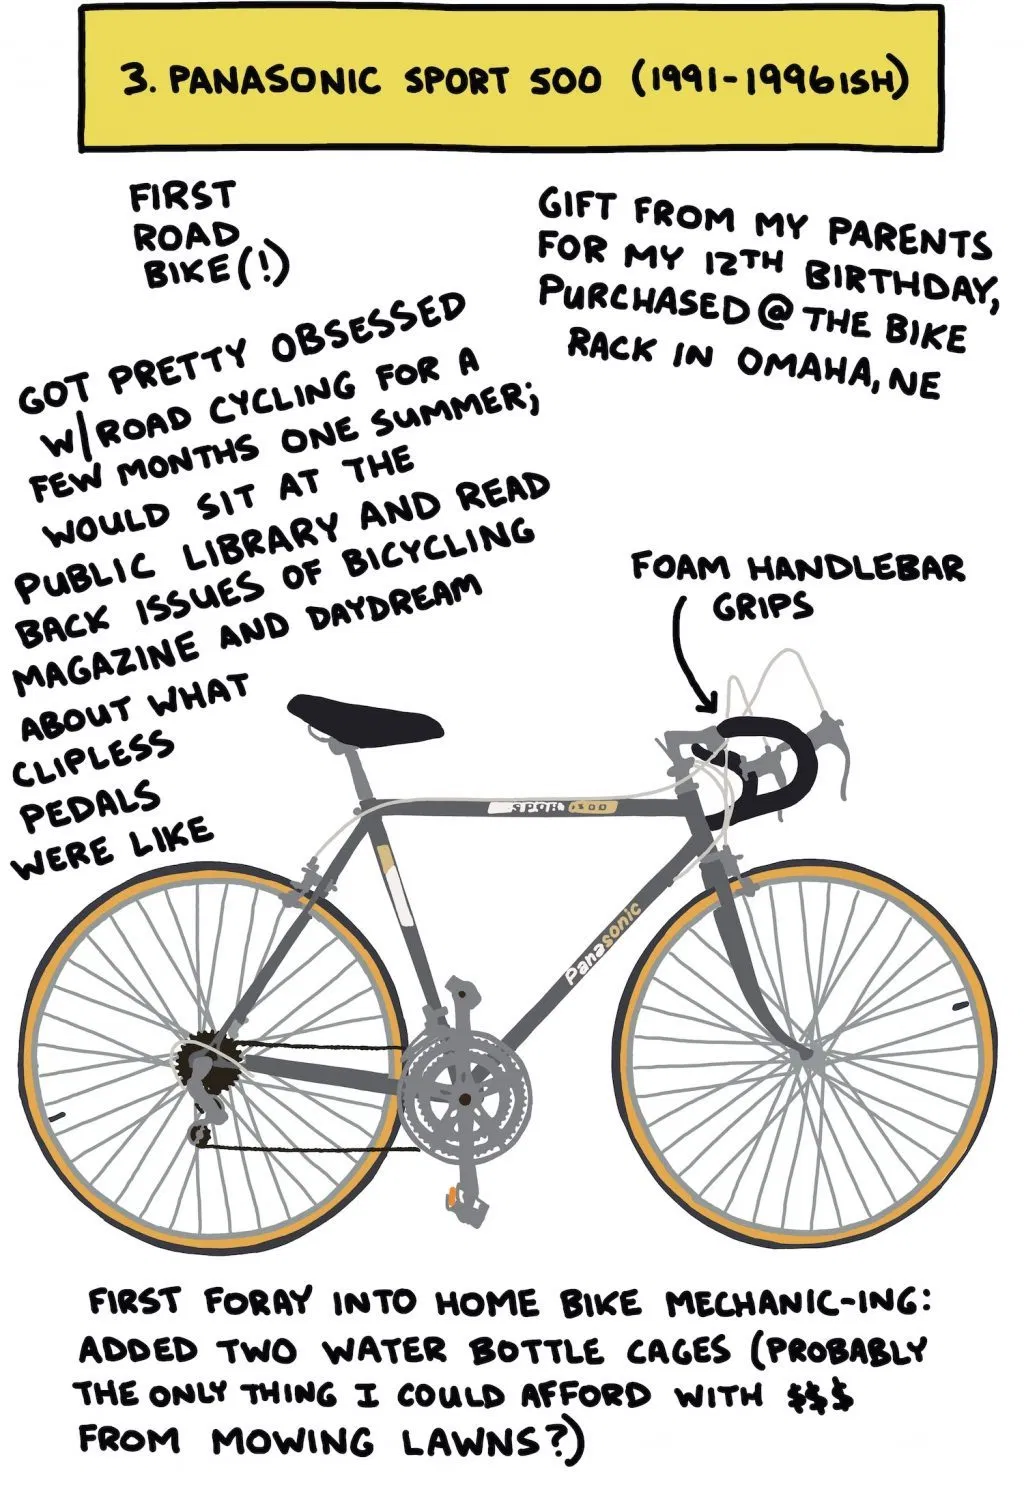 3. PANASONIC SPORT 500 (1991-1996ISH)
FIRST
ROAD
BIKE(!)
GIFT FROM MY PARENTS
FOR MY 12TH BIRTHDAY,
PURCHASED @ THE BIKE
RACK IN OMAHA, NE
GOT PRETTY OBSESSED
W/ROAD CYCLING FOR A
FEW MONTHS ONE SUMMER;
WOULD SIT AT THE
PUBLIC LIBRARY AND READ
BACK ISSUES OF BICYCLING
MAGAZINE AND DAYDREAM
ABOUT WHAT
CLIPLESS
PEDALS
WERE LIKE
FOAM HANDLEBAR
GRIPS
SPORT 500
Panasonic
FIRST FORAY INTO HOME BIKE MECHANIC-ING:
ADDED TWO WATER BOTTLE CAGES (PROBABLY
THE ONLY THING I COULD AFFORD WITH $$$
FROM MOWING LAWNS?)